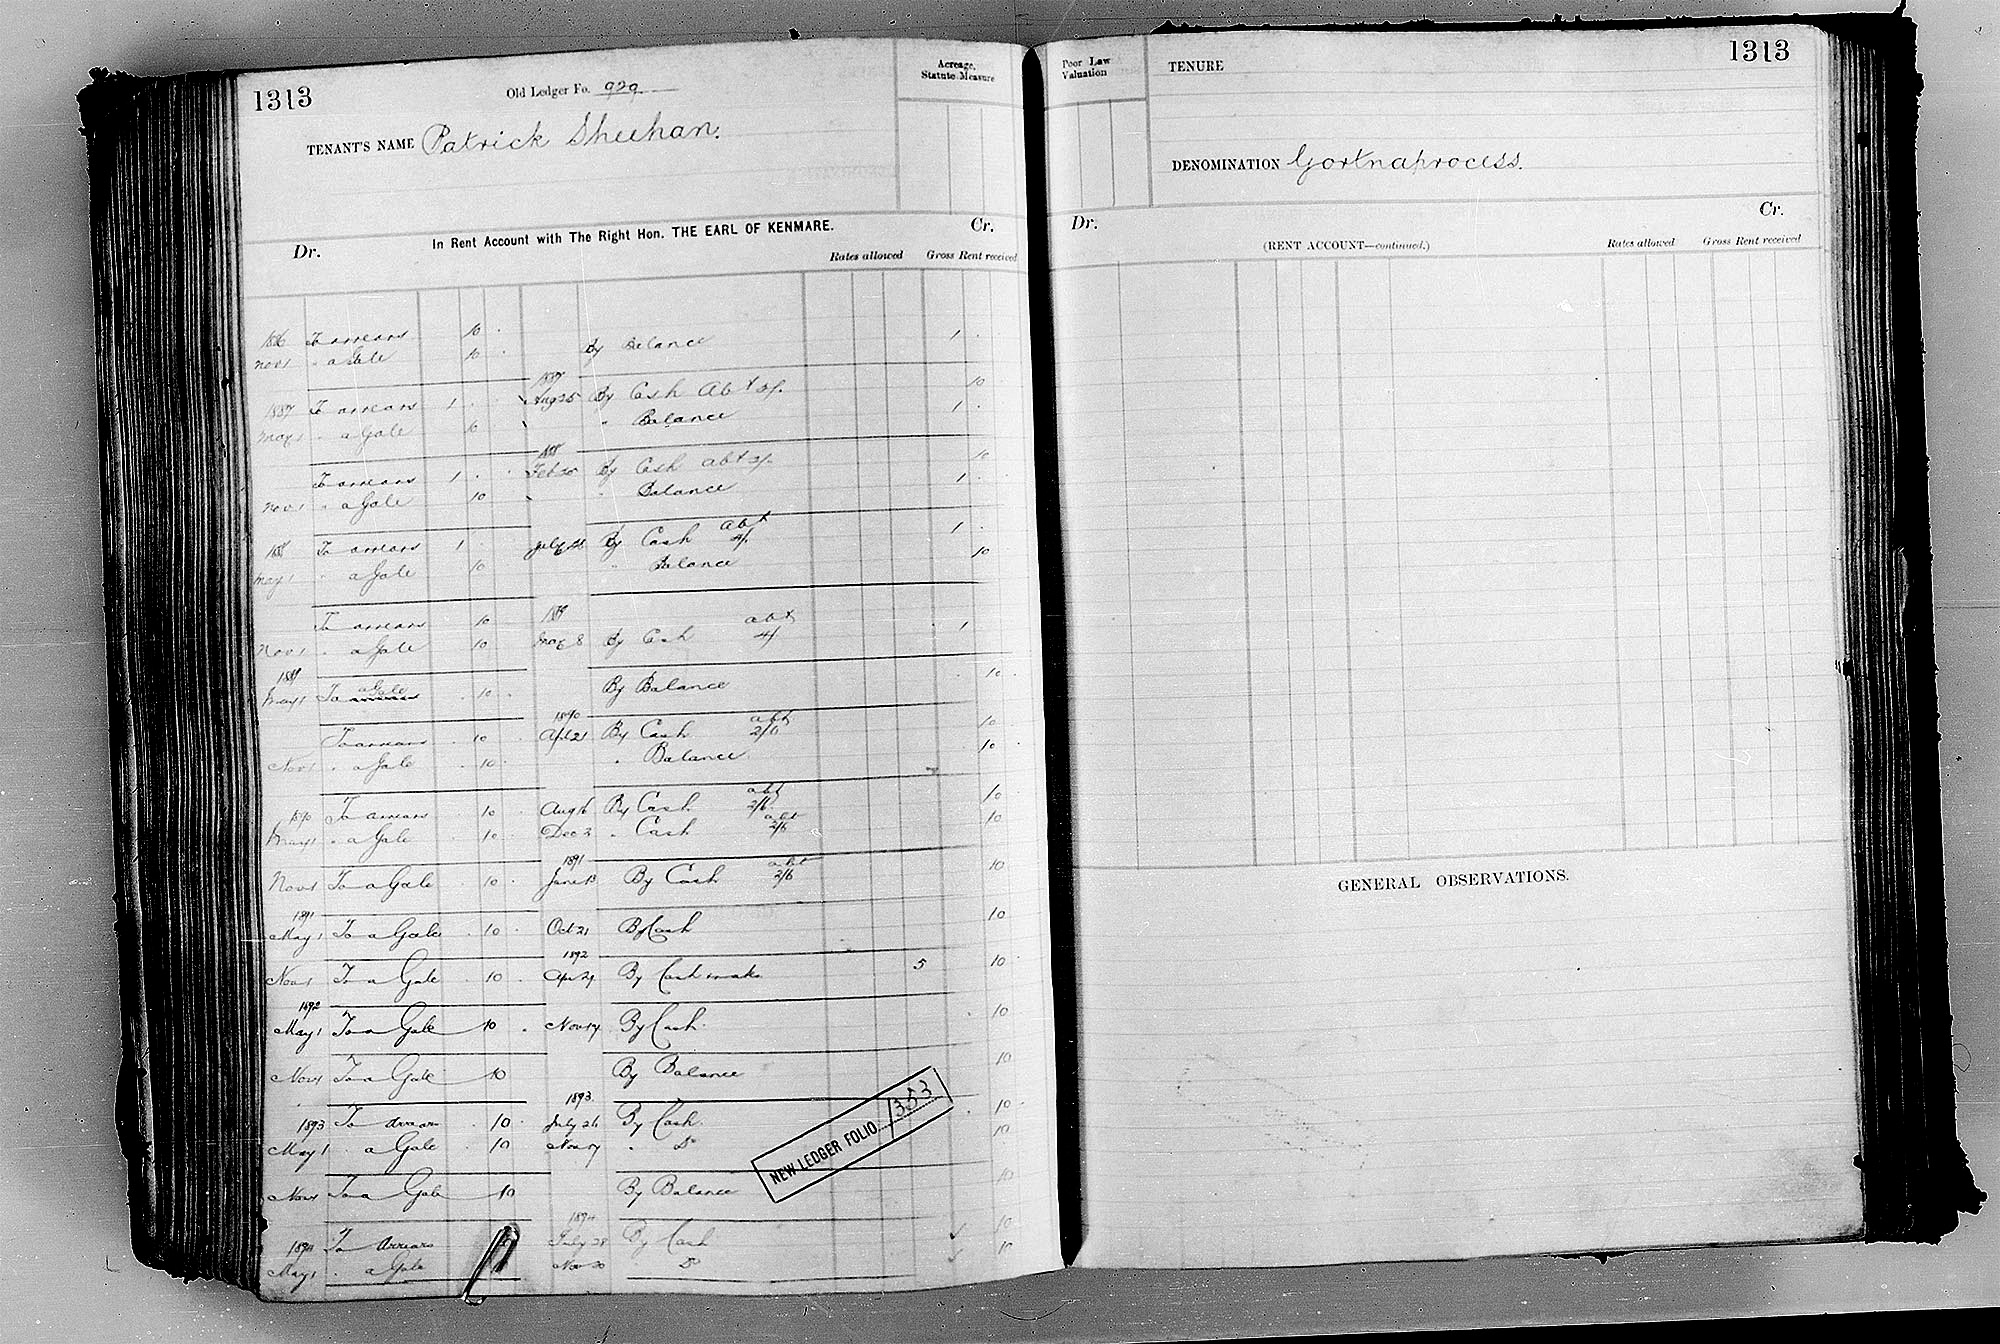 1313
Old Ledger Fo. 929
TENANT'S NAME Patrick Sheehan.
Acreage,
Statute Measure
In Rent Account with The Right Hon. THE EARL OF KENMARE.
Dr.
Cr.
Rates allowed Gross Rent received
1886 To arrears 10
Nov 1 " a Gale 10 By Balance 1
1887
1887 To arrears 1 Aug 25 By Cash Abt 2/. 10
May 1 " a Gale 10 " Balance 1
1888
To arrears 1 Feb 20 By Cash abt 2/. 10
Nov 1 " a Gale 10 " Balance 1
abt
1888 To arrears 1 July 26 By Cash 4/. 1
May 1 " a Gale 10 " Balance 10
1889
To arrears 10 abt
Nov 1 " a Gale 10 May 8 By Cash 4/ 1
1889 a Gale
May 1 To arrears 10 By Balance 10
1890 abt
To arrears 10 Apl 21 By Cash 2/6 10
Nov 1 " a Gale 10 " Balance 10
abt
1890 To arrears 10 Aug 16 By Cash 2/6 10
abt
May 1 " a Gale 10 Dec 2 " Cash 2/6 10
1891 abt
Nov 1 To a Gale 10 June 13 By Cash 2/6 10
1891
May 1 To a Gale 10 Oct 21 By Cash 10
1892
Nov 1 To a Gale 10 Apr 29 By Cash & rates 5 10
1892
May 1 To a Gale 10 Nov 17 By Cash 10
Nov 1 To a Gale 10 By Balance 10
1893
1893 To Arrears 10 July 26 By Cash 10
May 1 " a Gale 10 Nov 17 " Do 10
Nov 1 To a Gale 10 By Balance 10
1894
1894 To Arrears 10 July 28 By Cash 10
May 1 " a Gale Nov 20 Do 10
NEW LEDGER FOLIO 1353
1313
Poor Law
Valuation
TENURE
DENOMINATION Gortnaprocess.
Dr.
Cr.
(RENT ACCOUNT—continued.)
Rates allowed Gross Rent received
GENERAL OBSERVATIONS.